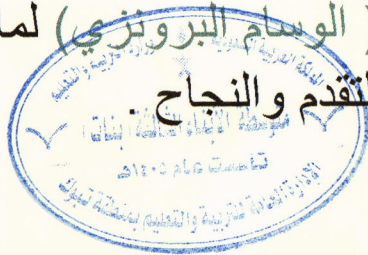 ( الوسام البرونزي ) لما
لتقدم والنجاح .
المملكة العربية السعودية
وزارة التربية والتعليم
متوسطة الأبناء الثالثة (بنات)
تأسست عام ١٤٠٥هـ
الإدارة العامة للتربية والتعليم بمنطقة تبوك